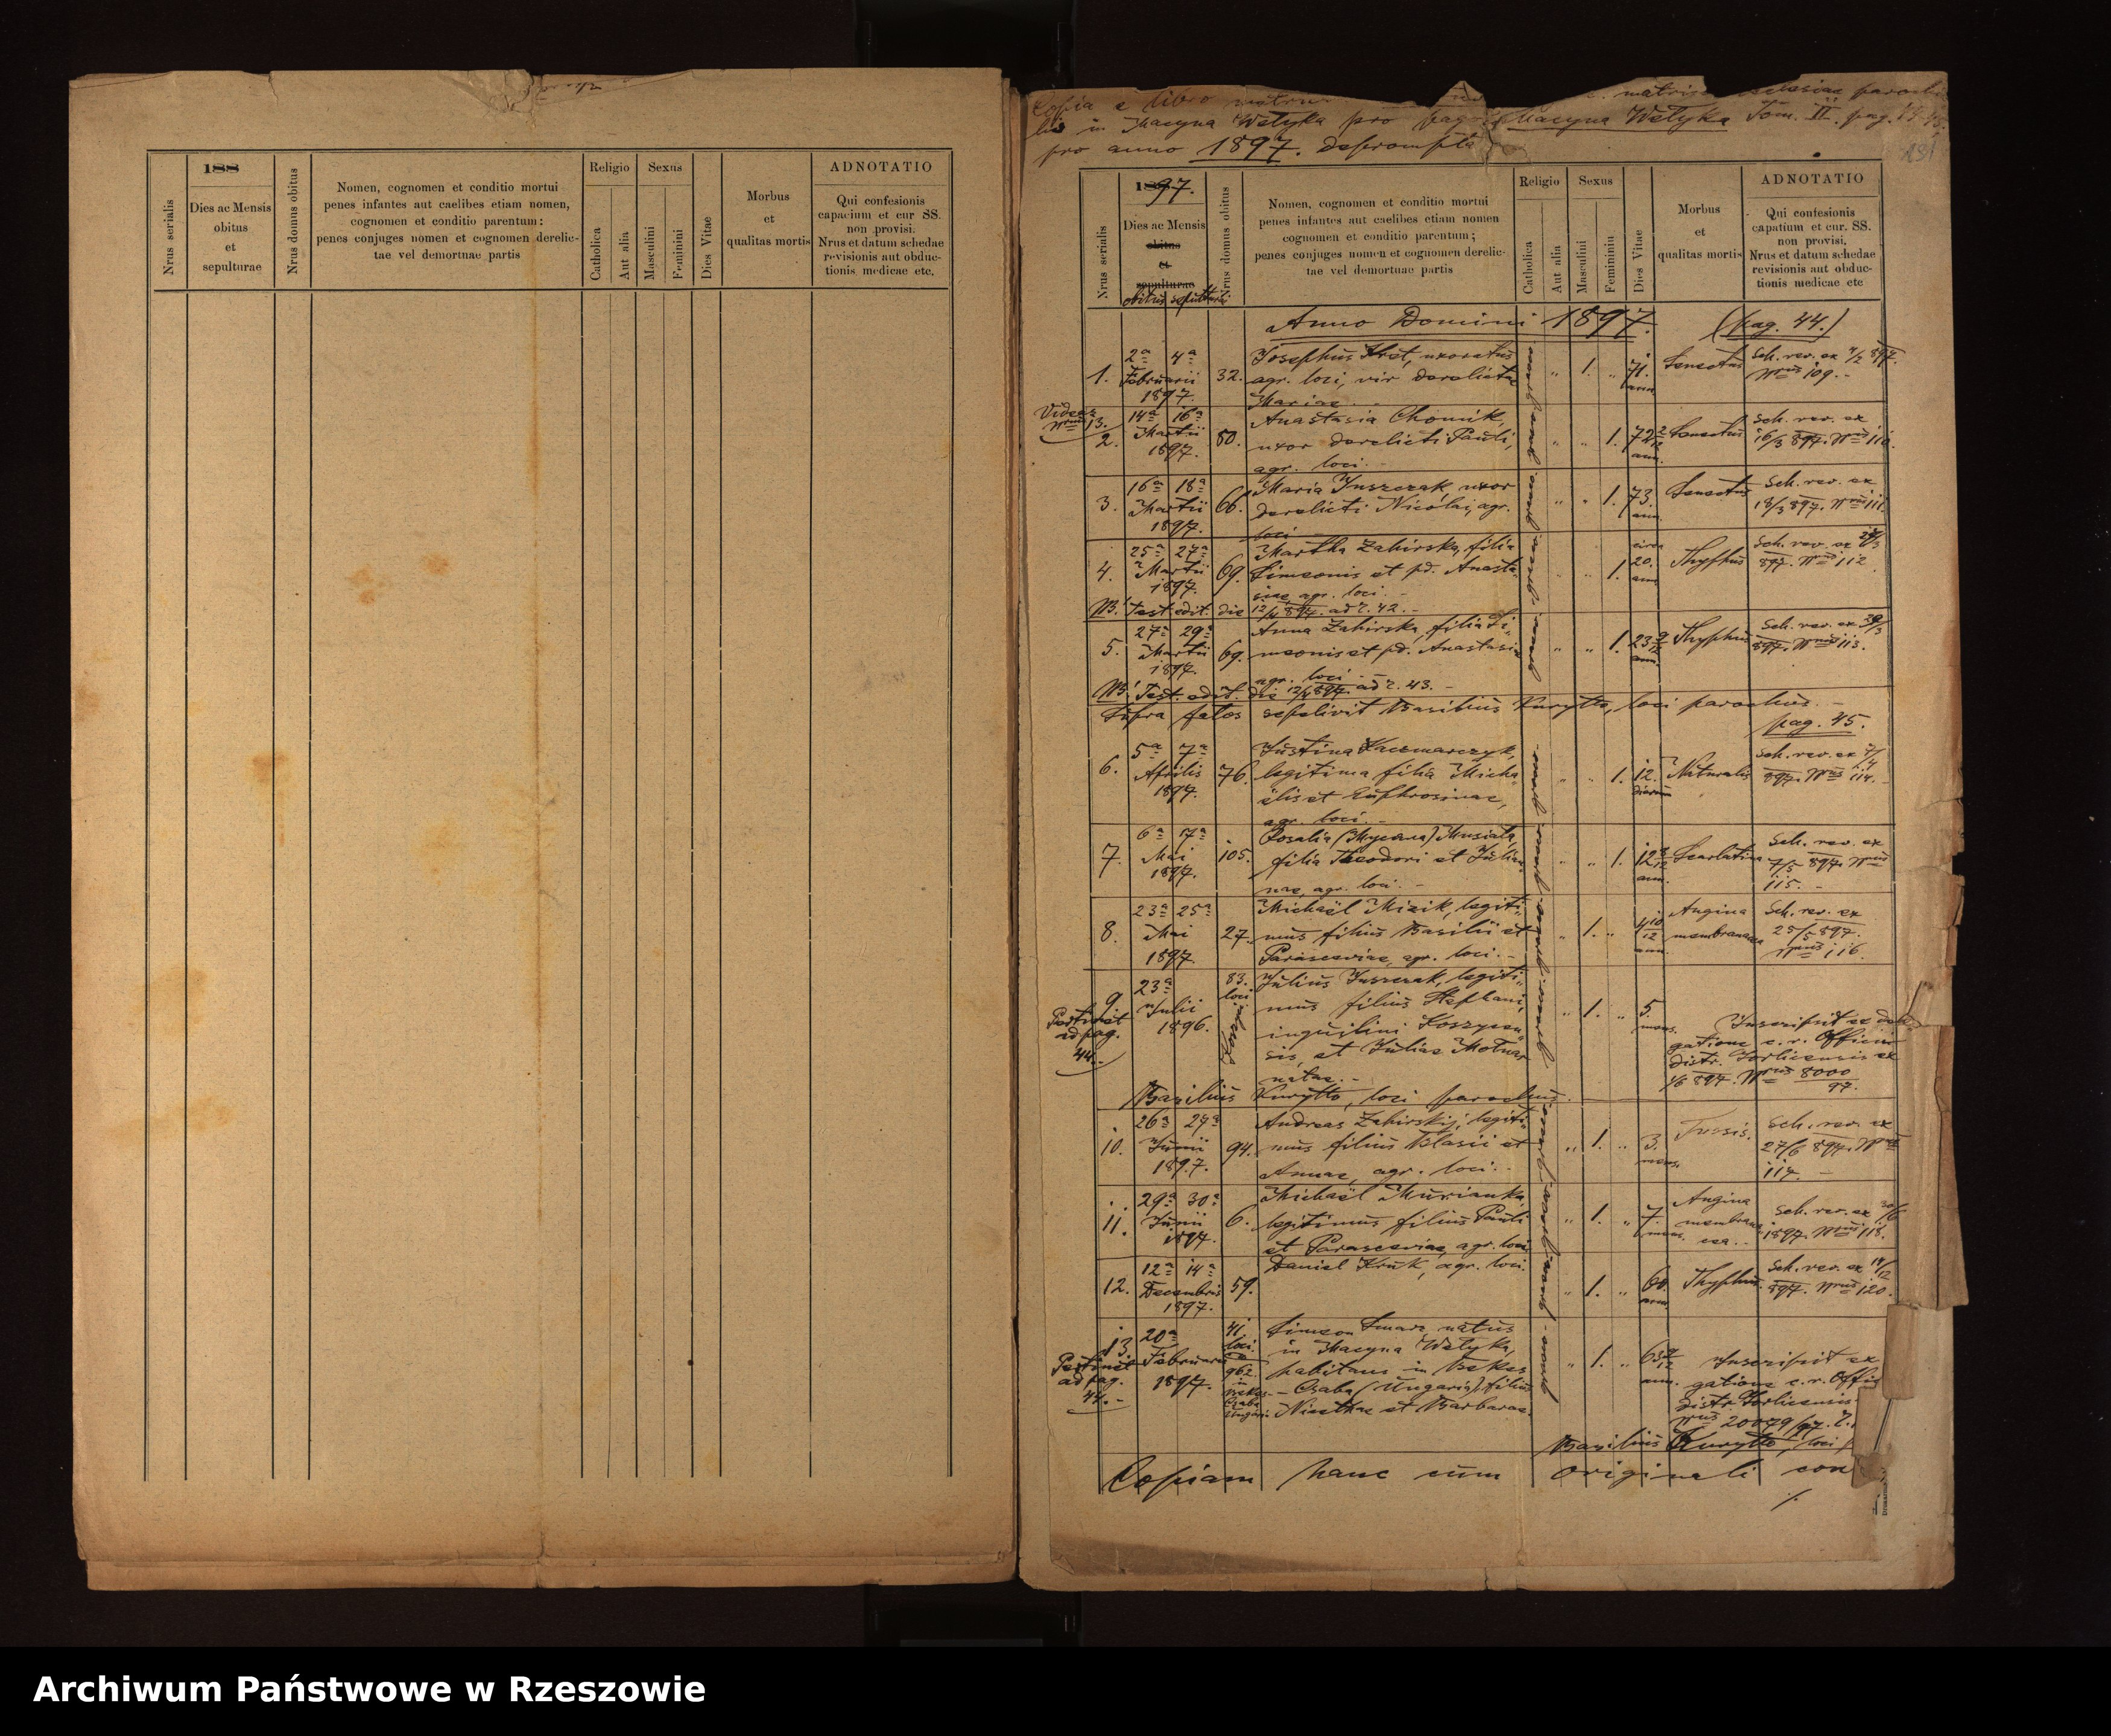 188
Nrus serialis
Dies ac Mensis
obitus
et
sepulturae
Nrus domus obitus
Nomen, cognomen et conditio mortui
penes infantes aut caelibes etiam nomen,
cognomen et conditio parentum:
penes conjuges nomen et cognomen derelic-
tae vel demortuae partis
Religio
Catholica
Aut alia
Sexus
Masculini
Feminini
Dies Vitae
Morbus
et
qualitas mortis
ADNOTATIO
Qui confesionis
capacium et cur SS.
non provisi.
Nrus et datum schedae
revisionis aut obduc-
tionis medicae etc.
Copia e libro
in Macyna Wetyka pro Macyna Wetyka Tom. II. pag.
pro anno 1897. deprompta
1897.
Nrus serialis
Dies ac Mensis
obitus
et
sepulturae
obitus sepulturae
Nrus domus obitus
Nomen, cognomen et conditio mortui
penes infantes aut caelibes etiam nomen
cognomen et conditio parentum;
penes conjuges nomen et cognomen derelic-
tae vel demortuae partis
Religio
Catholica
Aut alia
Sexus
Masculini
Feminini
Dies Vitae
Morbus
et
qualitas mortis
ADNOTATIO
Qui confesionis
capatium et cur. SS.
non provisi,
Nrus et datum schedae
revisionis aut obduc-
tionis medicae etc
Anno Domini 1897. (pag. 44.)
1. 2a 4a Februarii 1897. 32. Josephus Hret, uxoratus
agr. loci, vir derelictae
Mariae. 1. 71. ann. Senectus Sch. rev. ex 4/2 897. Nrus 109.
2. 14a 16a Martii 1897. 80. Anastasia Chomik,
uxor derelicti Pauli,
agr. loci. 1. 72 ann. Senectus Sch. rev. ex 16/3 897. Nrus 110.
3. 16a 18a Martii 1897. 66. Maria Juszczak, uxor
derelicti Nicolai, agr.
loci 1. 73. ann. Senectus Sch. rev. ex 18/3 897. Nrus 111.
4. 25a 27a Martii 1897. 69. Martha Zahirska, filia
Simeonis et pd. Anasta-
siae, agr. loci. 1. circa 20. ann. Thyphus Sch. rev. ex 897. Nrus 112
NB! Test. edit. die 12/4 897. ad N. 42.
5. 27a 29a Martii 1897. 69. Anna Zahirska, filia Si-
meonis et pd. Anastasiae
agr. loci 1. 23 ann. Thyphus Sch. rev. ex 897. Nrus 113.
NB! Test. edit. die 12/4 897. ad N. 43.
Supra fatos sepelivit Basilius Kuryłło, loci parochus.
pag. 45.
6. 5a 7a Aprilis 1897. 76. Justina Kaczmarczyk,
legitima filia Micha-
ëlis et Euphrosinae,
agr. loci. 1. 12. dierum Naturalis Sch. rev. ex 7/4 897. Nrus 114.
7. 6a 7a Mai 1897. 105. Rosalia Musiała,
filia Theodori et Julian-
nae, agr. loci. 1. 12 ann. Scarlatina Sch. rev. ex 7/5 897. Nrus 115.
8. 23a 25a Mai 1897. 27. Michaël Mizik, legiti-
mus filius Basilii et
Parasceviae, agr. loci. 1. ann. Angina membranacea Sch. rev. ex 25/5 897. Nrus 116.
9. 23a Julii 1896. 83. loci Julius Juszczak, legiti-
mus filius Stephani,
inquilini
et Juliae
natae. 1. 5. mens. Inscripsit ex dele-
gatione c. r. Officii
distr. Gorlicensis ex
897. Nrus 8000/97.
Pertinet ad pag. 44.
Basilius Kuryłło, loci parochus.
10. 26a 27a Junii 1897. 94. Andreas Zahirskij, legiti-
mus filius Blasii et
Annae, agr. loci. 1. 3. mens. Tussis. Sch. rev. ex 27/6 897. Nrus 117.
11. 29a 30a Junii 1897. 6. Michaël Murianka,
legitimus filius Pauli
et Parasceviae, agr. loci 1. 7. mens. Angina membrana-
cea. Sch. rev. ex 30/6 1897. Nrus 118.
12. 12a 14a Decembris 1897. 59. Daniel Kruk, agr. loci. 1. 60. ann. Thyphus. Sch. rev. ex 14/12 897. Nrus 120.
13. 20a Februarii 1897. 41. loci 962 in Bekes-Csaba Ungaria Simeon natus
in Macyna Wetyka,
habitans in Bekes
-Csaba (Ungaria), filius
Nicetae et Barbarae. 1. ann. Inscripsit ex
gatione c. r. Offic
distr. Gorlicensis
Nrus 20079/97.
Pertinet ad pag. 44.
Basilius Kuryłło, loci
Copiam hanc cum originali con
Archiwum Państwowe w Rzeszowie